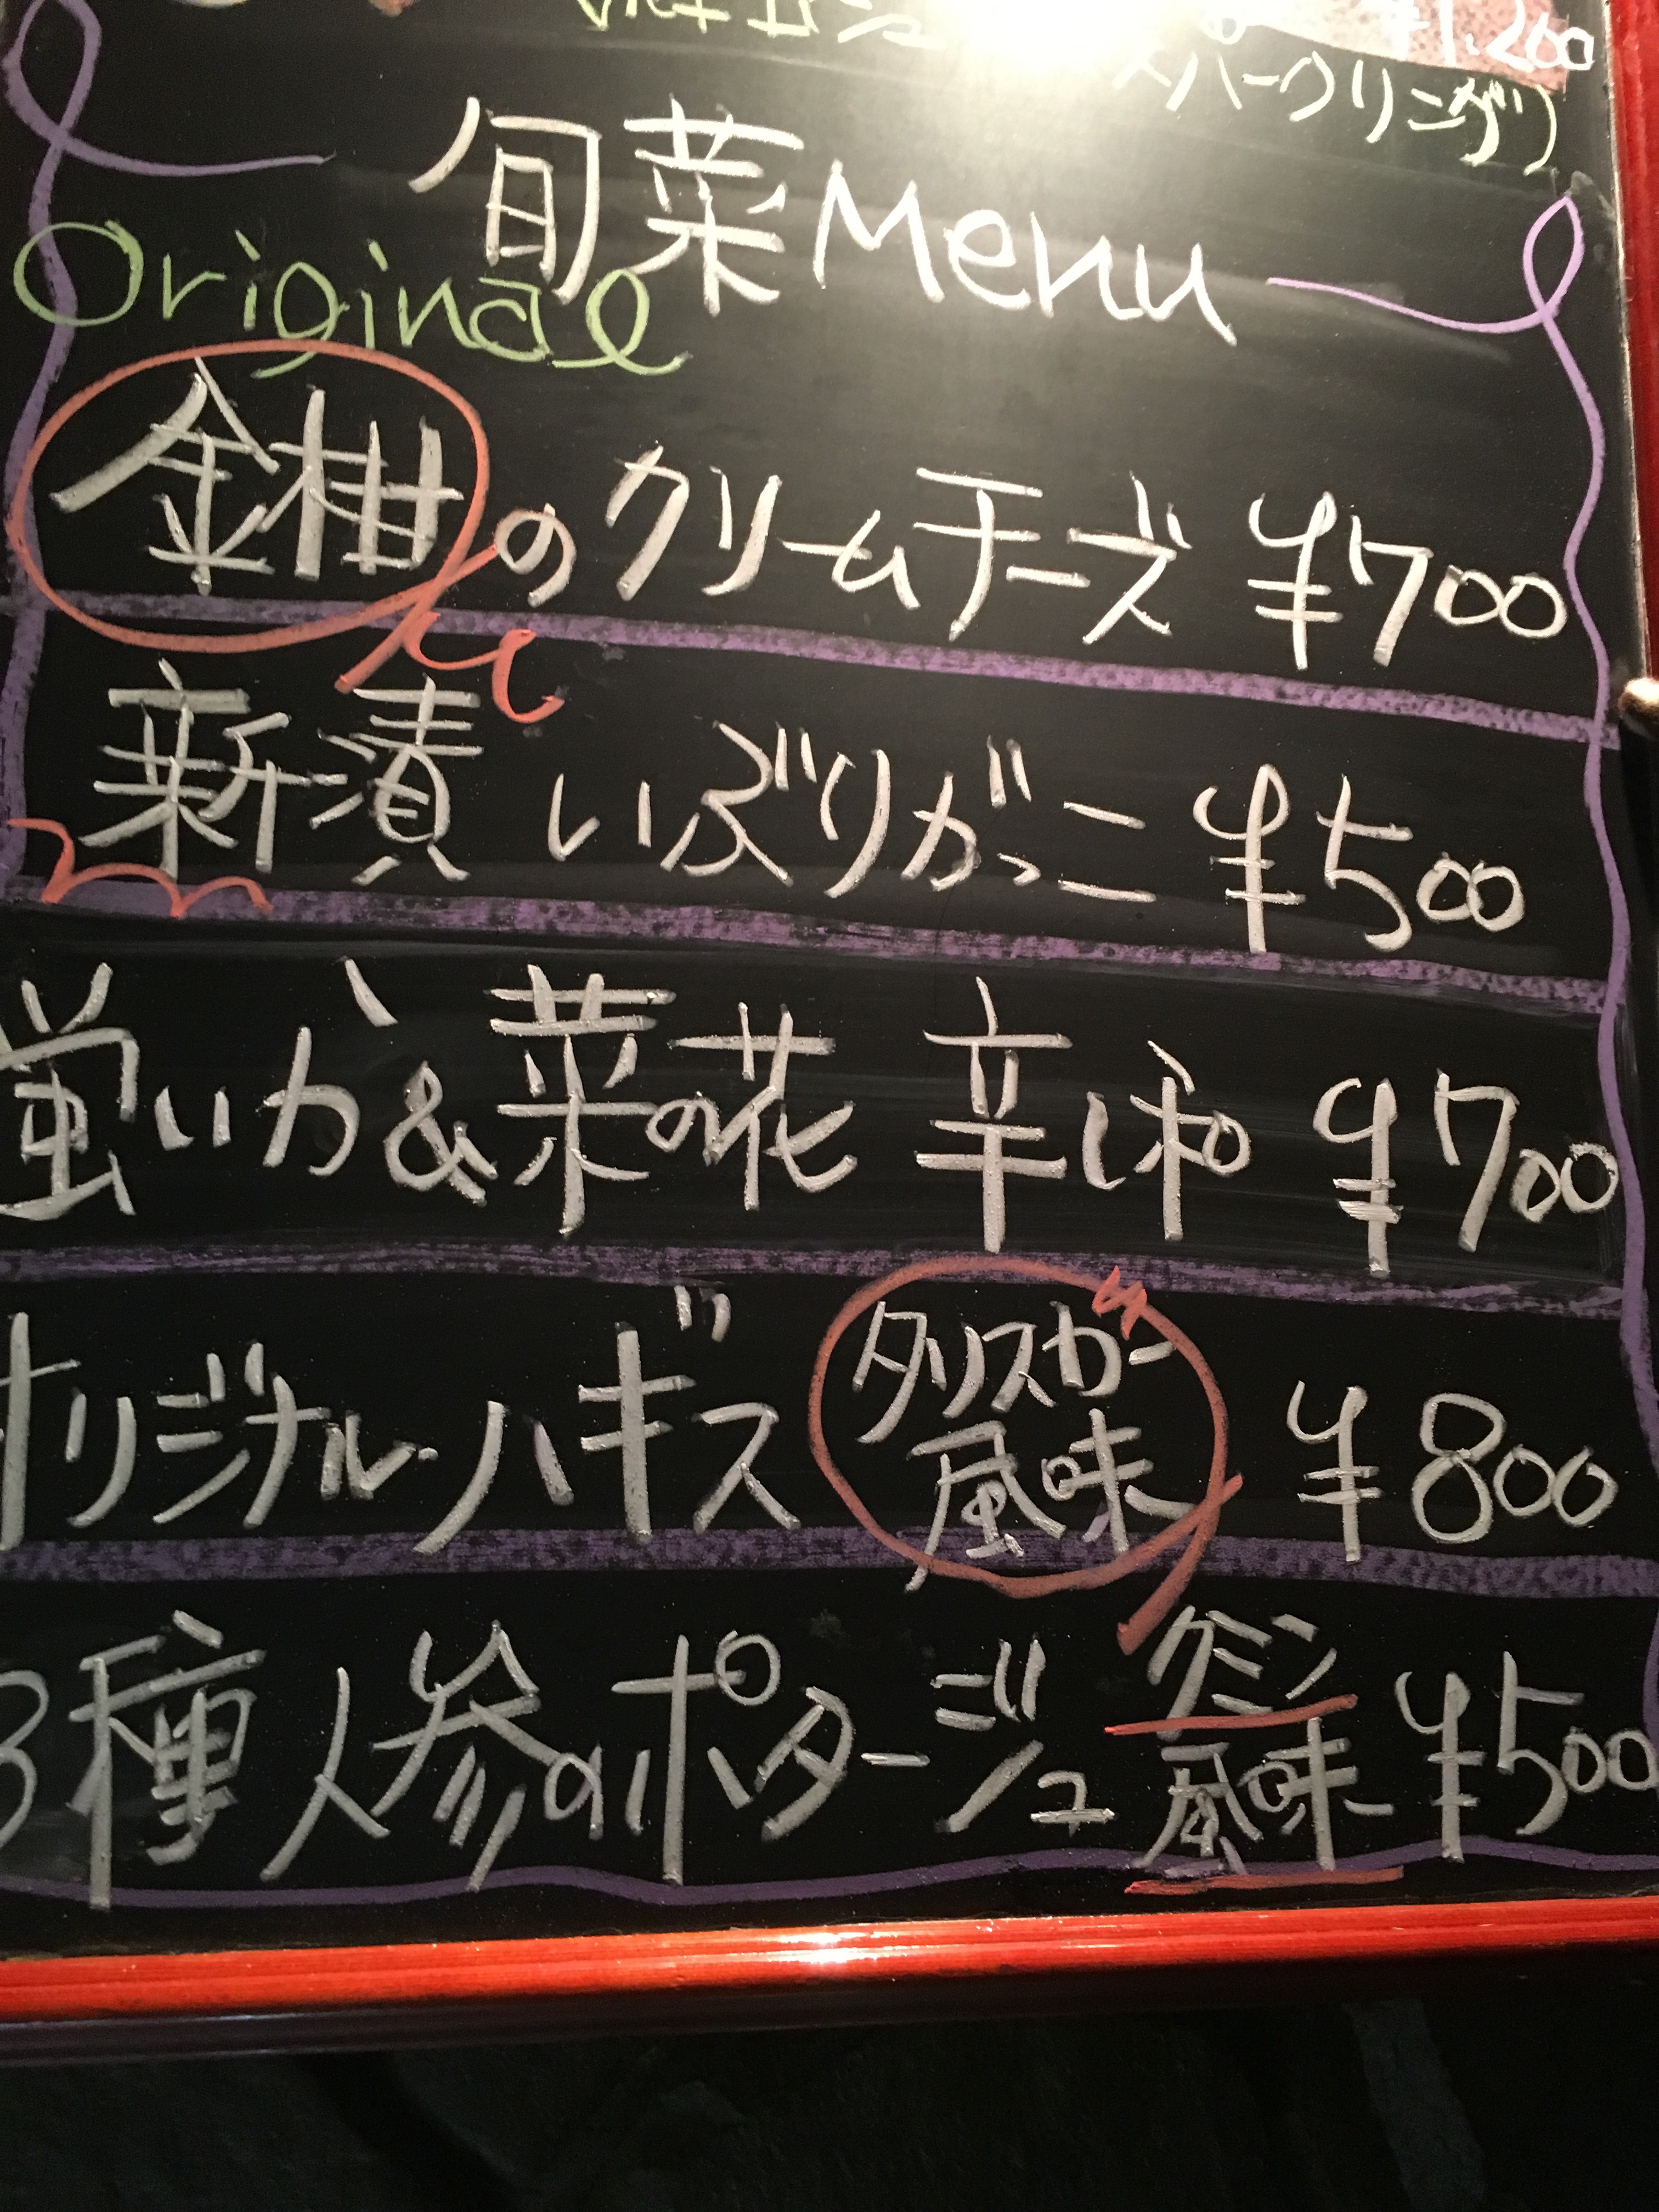 ¥1,200
スパークリング)
旬菜Menu
Original
金柑のクリームチーズ ¥700
新漬 いぶりがっこ ¥500
蛍いか&菜の花 辛し和 ¥700
オリジナル・ハギス タリスカー風味 ¥800
3種人参のポタージュ クミン風味 ¥500